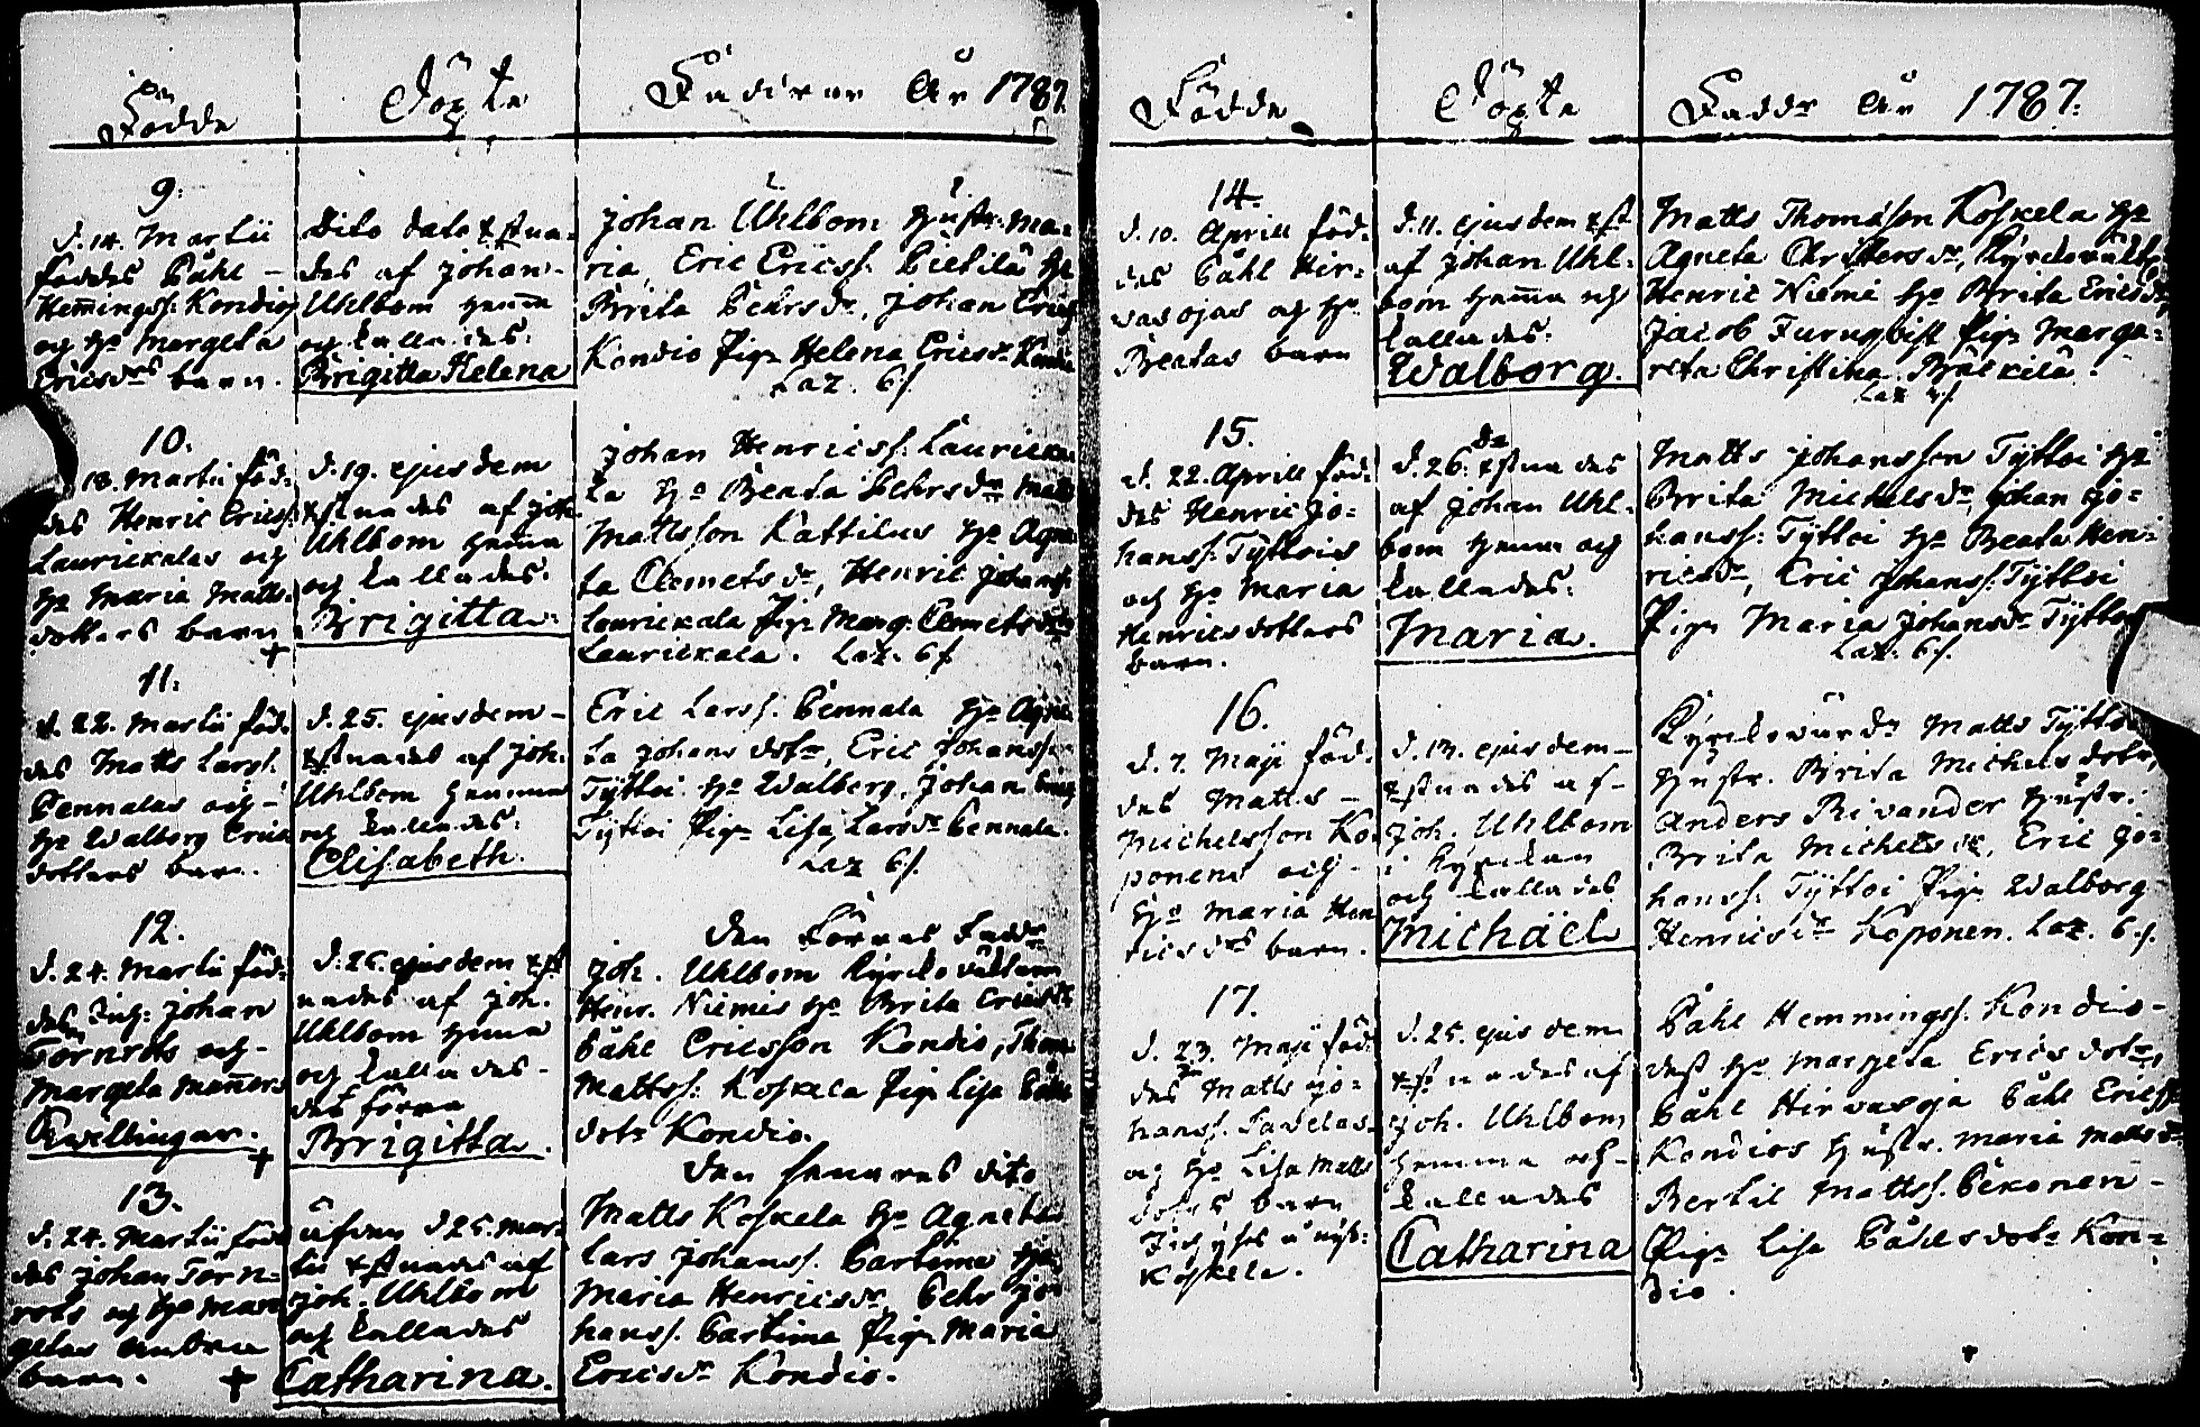 Födde
Döpte
Faddrar År 1787.
9.
d. 14. Martii
föddes Påhl
Hemingss: Kondios
och Ho Margeta
Ericsdrs barn.
Dito dato xstna-
des af Johan
Uhlbom hemma
och kallades:
Brigitta Helena
Johan Uhlbom Hustr. Ma-
ria, Eric Ericss. Pietilä Ho
Brita Pehrsdr, Johan Erics
Kondio Pig. Helena Ericsdr Kondio
Laz. 6 s.
10.
18. Martii föd-
des Henric Ericss:
Laurickalas och
Ho Maria Matts-
dotters barn
+
d. 19. ejusdem
xstnades af Joh.
Uhlbom hemma
och kallades.
Brigitta.
Johan Henricss: Lauricka-
la Ho Beata Pehrsdr Matts
Mattsson Kattilus Ho Agne-
ta Clemetsdr, Henric Johanss.
Laurickala Pig. Marg: Clemetsdr
Laurickala. Laz. 6 s
11.
d. 22. Martii föd-
des Matts Larss.
Pennalas och
Ho Walborg Erics
dotters barn.
d. 25. ejusdem
xstnades af Joh.
Uhlbom hemma
och kallades:
Elisabeth.
Eric Larss. Pennala Ho Agne-
ta Johans dotr, Eric Johansson
Tyttoi Ho Walborg, Johan
Tyttoi Pig. Lisa Larsdr Pennala.
Laz 6 s.
12.
d. 24. Martii föd-
des Inh: Johan
Törnrots och
Margeta
Twillingar.
+
d. 25. ejusdem xst-
nades af Joh.
Uhlbom hemma
och kallades
det förra
Brigitta.
Den Förras Faddr
Joh. Uhlbom Kyrckowäktaren
Henr. Niemis Ho Brita Ericsdr
Påhl Ericsson Kondio, Thom.
Mattss: Koskela Pig. Lisa Påhls
dotr Kondio.
13.
d. 24. Martii föd-
des Johan Törn-
rots och Ho Mar-
getas andra
barn. +
äfven d 25. Mar-
tii xstnades af
Joh. Uhlbom
och kallades
Catharina.
Den senares dito
Matts Koskela Ho Agneta
Lars Johanss. Partima Ho
Maria Henricsdr Pehr Jo-
hanss. Partima Pig. Maria
Ericsdr Kondio.
Födde
Döpte
Faddr År 1787.
14.
d. 10. Aprill föd-
des Påhl Hir-
wasojas och Ho
Beatas barn
d. 11. ejusdem xst
af Johan Uhl-
bom hemma och
kallades.
Walborg.
Matts Thomasson Koskela Ho
Agneta Christersdr, Kyrckowäkt.
Henric Niemi Ho Brita Ericsdr
Jacob Furuqvist Pig. Marga-
reta Christina
Laz
15.
d. 22. Aprill föd-
des Henric Jo-
hanss: Tyttois
och Ho Maria
Henricsdotters
barn.
d. 26. do xstnades
af Johan Uhl-
bom hemma och
kallades.
Maria.
Matts Johansson Tyttoi Ho
Brita Michelsdr, Johan Jo-
hanss: Tyttoi Ho Beata Hen-
ricsdr, Eric Johanss: Tyttoi
Pig. Maria Johansdr Tyttoi
Laz. 6 s.
16.
d. 7. Maji föd-
des Matts
Michelsson Ko-
ponens och
Ho Maria Hen-
ricsdrs barn.
d. 13. ejusdem
xstnades af
Joh. Uhlbom
i Kyrckan
och kallades
Michäel
Kyrckowärdn Matts Tyttoi
Hustr. Brita Michelsdotr,
Anders Rivander Hustr.
Brita Michelsdr, Eric Jo-
hanss. Tyttoi Pig. Walborg
Henricsdr Koponen. Laz. 6 s.
17.
d. 23. Maji föd-
des Matts Jo-
hanss. Tavelas
och Ho Lisa Matts
dotrs barn
Koskela.
d. 25. ejusdem
xstnades af
Joh. Uhlbom
hemma och
kallades
Catharina
Påhl Hemmingss. Kondio
dess Ho Margeta Ericsdotr,
Påhl Hirwasoja Påhl Ericss
Kondios Hustr. Maria Mattsdr
Bertil Mattss. Pekonen
Pig. Lisa Påhlsdotr Kon-
dio.